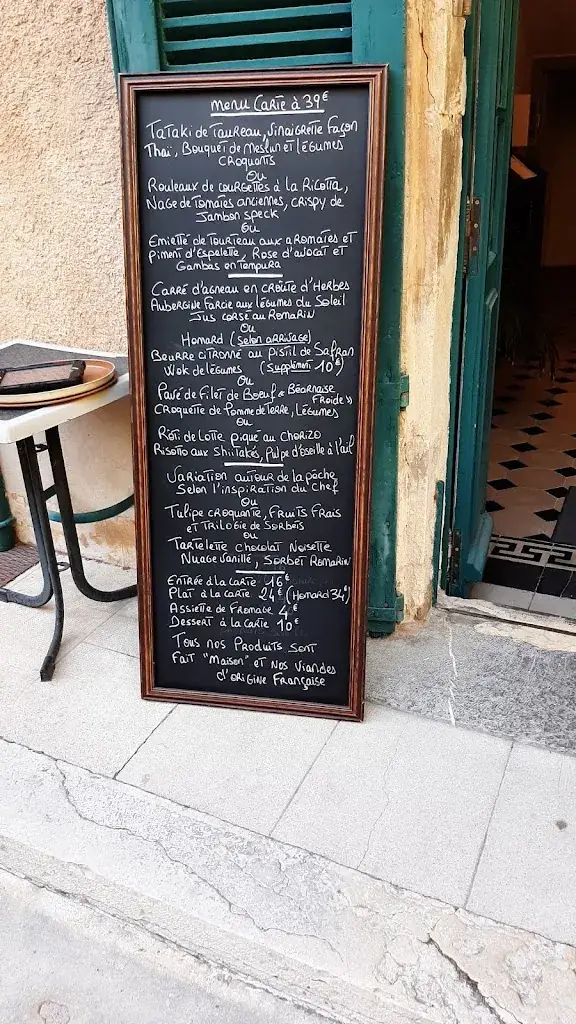 Menu Carte à 39€
Tataki de Taureau, Vinaigrette Façon
Thaï, Bouquet de Mesclun et légumes
croquants
Ou
Rouleaux de courgettes à la Ricotta,
Nage de Tomates anciennes, crispy de
Jambon speck
Ou
Emietté de Tourteau aux aromates et
Piment d'Espelette, Rose d'avocat et
Gambas en Tempura
Carré d'agneau en croûte d'Herbes
Aubergine Farcie aux légumes du Soleil
Jus corsé au Romarin
Ou
Homard (selon arrivage)
Beurre citronné au pistil de Safran
Wok de légumes (Supplément 10€)
Ou
Pavé de Filet de Boeuf « Béarnaise
Froide »
Croquette de Pomme de Terre, Légumes
Ou
Rôti de Lotte piqué au Chorizo
Risotto aux Shiitakés, Pulpe d'oseille à l'ail
Variation autour de la pêche
Selon l'inspiration du Chef
Ou
Tulipe croquante, Fruits Frais
et Trilogie de Sorbets
Ou
Tartelette Chocolat Noisette
Nuage Vanillé, Sorbet Romarin
Entrée à la carte 16€
Plat à la carte 24€ (Homard 34€)
Assiette de Fromage 4€
Dessert à la carte 10€
Tous nos Produits sont
Fait "Maison" et nos Viandes
d'origine Française